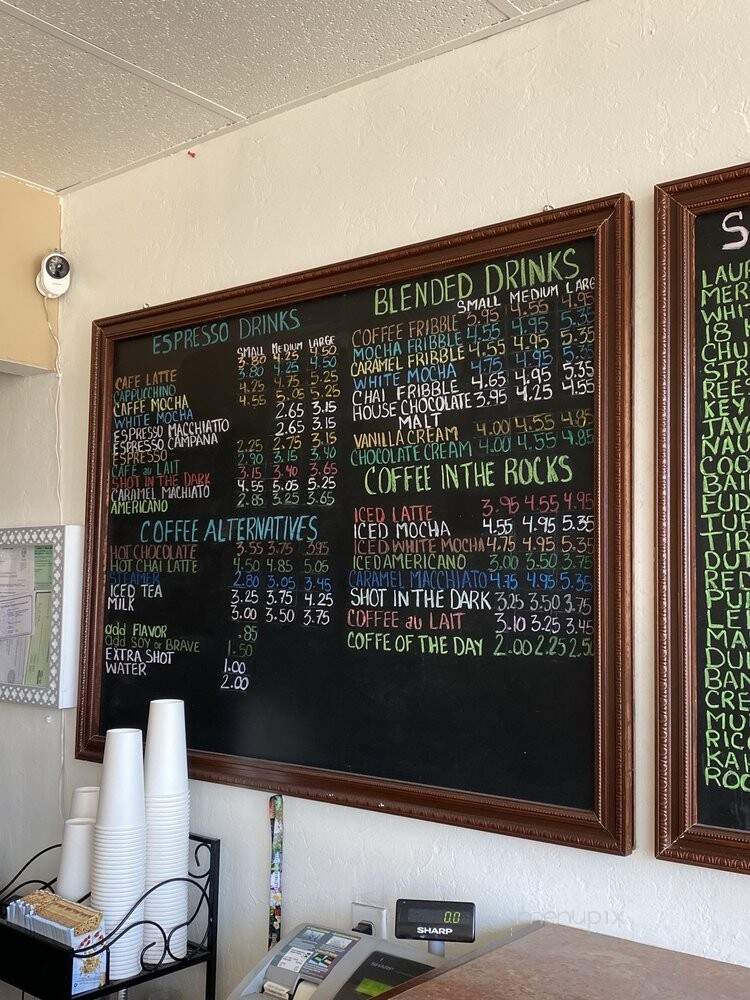 ESPRESSO DRINKS
SMALL MEDIUM LARGE
CAFE LATTE 3.80 4.25 4.50
CAPPUCCINO 3.80 4.25 4.50
CAFFE MOCHA 4.25 4.75 5.25
WHITE MOCHA 4.55 5.05 5.25
ESPRESSO MACCHIATO 2.65 3.15
ESPRESSO CAMPANA 2.65 3.15
ESPRESSO 2.25 2.75 3.15
CAFE au LAIT 2.90 3.15 3.40
SHOT IN THE DARK 3.15 3.40 3.65
CARAMEL MACHIATO 4.55 5.05 5.25
AMERICANO 2.85 3.25 3.65
COFFEE ALTERNATIVES
HOT CHOCOLATE 3.55 3.75 3.95
HOT CHAI LATTE 4.50 4.85 5.05
STEAMER 2.80 3.05 3.45
ICED TEA 3.25 3.75 4.25
MILK 3.00 3.50 3.75
add FLAVOR .85
add SOY or BRAVE 1.50
EXTRA SHOT 1.00
WATER 2.00
BLENDED DRINKS
SMALL MEDIUM LARG
COFFEE FRIBBLE 3.95 4.55 4.95
MOCHA FRIBBLE 4.55 4.95 5.35
CARAMEL FRIBBLE 4.55 4.95 5.35
WHITE MOCHA 4.75 4.95 5.35
CHAI FRIBBLE 4.65 4.95 5.35
HOUSE CHOCOLATE 3.95 4.25 4.55
MALT
VANILLA CREAM 4.00 4.55 4.85
CHOCOLATE CREAM 4.00 4.55 4.85
COFFEE IN THE ROCKS
ICED LATTE 3.95 4.55 4.95
ICED MOCHA 4.55 4.95 5.35
ICED WHITE MOCHA 4.75 4.95 5.35
ICED AMERICANO 3.00 3.50 3.75
CARAMEL MACCHIATO 4.75 4.95 5.35
SHOT IN THE DARK 3.25 3.50 3.75
COFFEE au LAIT 3.10 3.25 3.45
COFFE OF THE DAY 2.00 2.25 2.50
S
LAUR
MER
WHI
18
CHU
STR
REES
KEY
JAVA
NAU
COC
BAI
FUD
TUR
TIR
DUT
RED
PU
LE
MA
DU
BAN
CRE
MU
RIC
KAH
ROC
0.0
SHARP
menupix